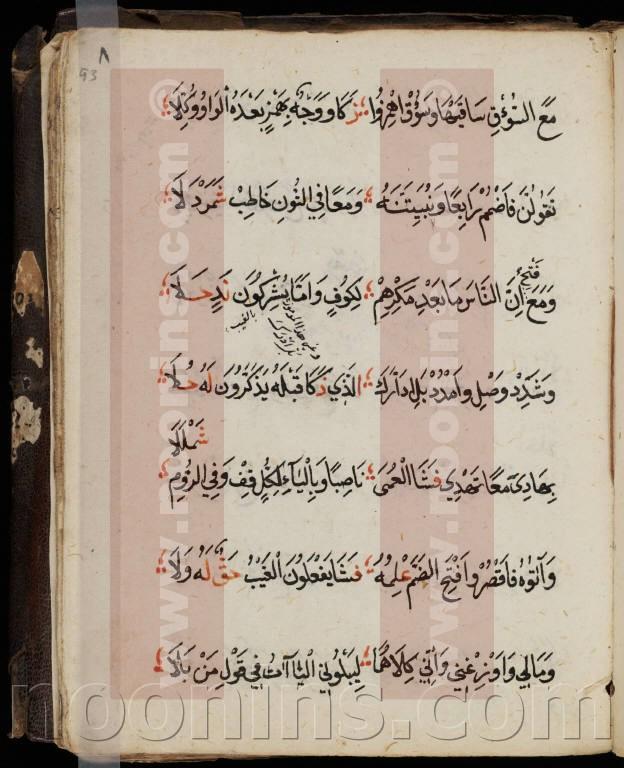 ٨
93
مَعَ السُّؤْقِ سَاقَيْهَا وَسُؤْقِ اهْمِزُوا زَكَا وَوَجْهٌ بِهَمْزٍ بَعْدَهُ الْوَاوُ وُكِّلَا
نَقُولَنَّ فَاضْمُمْ رَابِعًا وَنُبَيِّتَنَّهُ وَمَعًا فِي النُّونِ خَاطِبْ شَمَرْدَلَا
فَتْحُ
وَمَعْ أَنَّ النَّاسَ مَا بَعْدَ مَكْرِهِمْ لِكُوفٍ وَأَمَّا يُشْرِكُونَ نَدٍ حَلَا
وَشَدِّدْ وَصِلْ وَامْدُدْ بَلِ ادَّارَكَ الَّذِي ذَكَا قَبْلَهُ يَذَّكَّرُونَ لَهُ حُلَا
شَمْلَلَا
بِهَادِي مَعًا تَهْدِي فَشَا الْعُمْيَ نَاصِبًا وَبِالْيَاءِ لِكُلٍّ قِفْ وَفِي الرُّومِ
وَآتُوهُ فَاقْصُرْ وَافْتَحِ الضَّمَّ عِلْمُهُ فَشَا يَفْعَلُونَ الْغَيْبُ حَقٌّ لَهُ وَلَا
وَمَالِي وَأَوْزِعْنِي وَإِنِّي كِلَاهُمَا لِيَبْلُوَنِي الْيَاآتُ فِي قَوْلِ مَنْ بَلَا
www.noonins.com ©
www.noonins.com ©
noonins.com